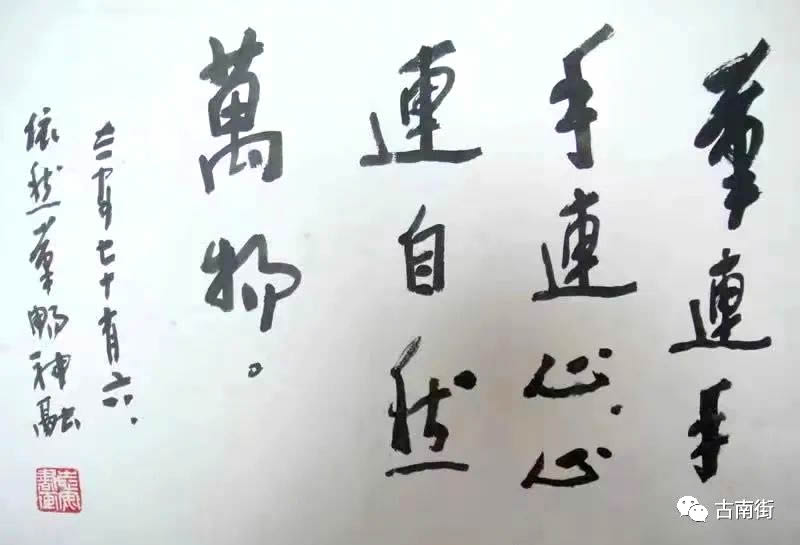 筆連手
手連心、心
連自然
萬物。
七十有六.
依然筆暢神融
古南街